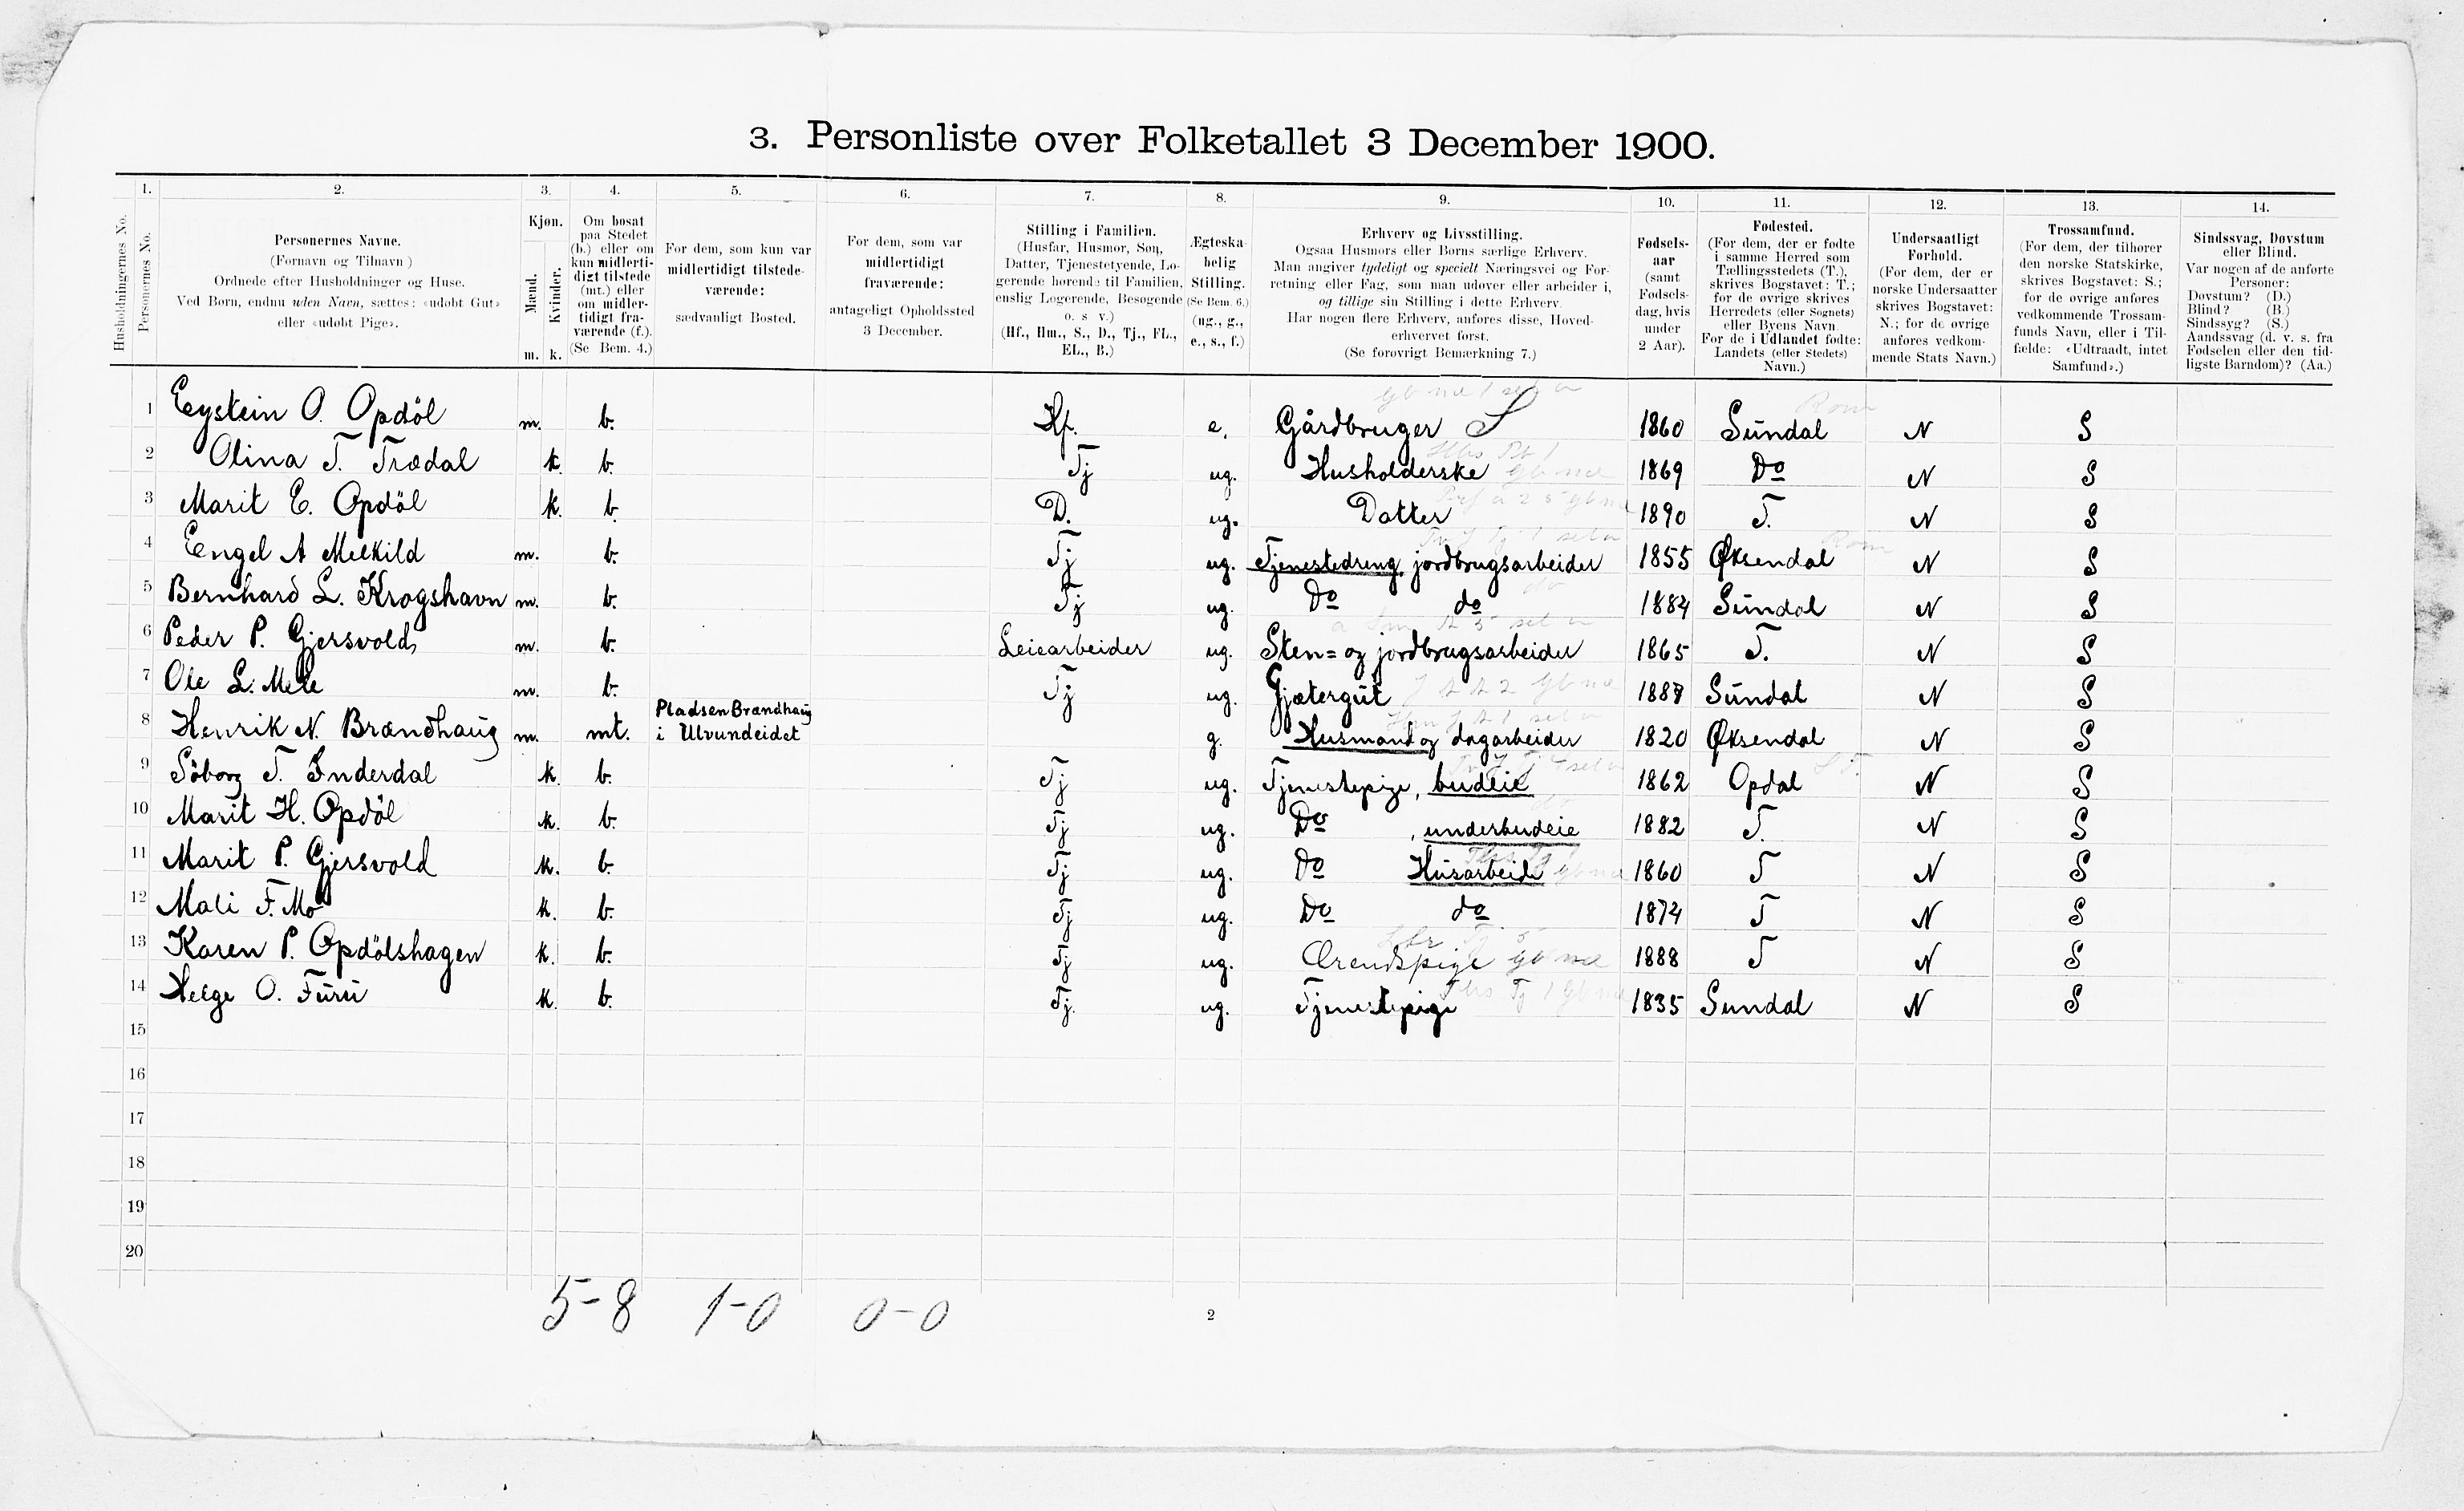 3. Personliste over Folketallet 3 December 1900.
1. 2. 3. 4. 5. 6. 7. 8. 9. 10. 11. 12. 13. 14.
Husholdningernes No.
Personernes No.
Personernes Navne.
(Fornavn og Tilnavn)
Ordnede efter Husholdninger og Huse.
Ved Børn, endnu uden Navn, sættes: «udøbt Gut»
eller «udøbt Pige».
Kjøn.
Mænd.
Kvinder.
m. k.
Om bosat
paa Stedet
(b.) eller om
kun midlerti-
digt tilstede
(mt.) eller
om midler-
tidigt fra-
værende (f.).
(Se Bem. 4.)
For dem, som kun var
midlertidigt tilstede-
værende:
sædvanligt Bosted.
For dem, som var
midlertidigt
fraværende:
antageligt Opholdssted
3 December.
Stilling i Familien.
(Husfar, Husmor, Søn,
Datter, Tjenestetyende, Lo-
gerende hørende til Familien,
enslig Logerende, Besøgende
o. s v.)
(Hf., Hm., S., D., Tj., FL.,
EL., B.)
Ægteska-
belig
Stilling.
(Se Bem. 6.)
(ug., g.,
e., s., f.)
Erhverv og Livsstilling.
Ogsaa Husmors eller Børns særlige Erhverv.
Man angiver tydeligt og specielt Næringsvei og For-
retning eller Fag, som man udøver eller arbeider i,
og tillige sin Stilling i dette Erhverv.
Har nogen flere Erhverv, anføres disse, Hoved-
erhvervet først.
(Se forøvrigt Bemærkning 7.)
Fødsels-
aar
(samt
Fødsels-
dag, hvis
under
2 Aar).
Fødested.
(For dem, der er fødte
i samme Herred som
Tællingsstedets (T.),
skrives Bogstavet: T.;
for de øvrige skrives
Herredets (eller Sognets)
eller Byens Navn
For de i Udlandet fødte:
Landets (eller Stedets)
Navn.)
Undersaatligt
Forhold.
(For dem, der er
norske Undersaatter
skrives Bogstavet:
N.; for de øvrige
anføres vedkom-
mende Stats Navn.)
Trossamfund.
(For dem, der tilhører
den norske Statskirke,
skrives Bogstavet: S.;
for de øvrige anføres
vedkommende Trossam-
funds Navn, eller i Til-
fælde: «Udtraadt, intet
Samfund».)
Sindssvag, Døvstum
eller Blind.
Var nogen af de anførte
Personer:
Døvstum? (D.)
Blind? (B.)
Sindssyg? (S.)
Aandssvag (d. v. s. fra
Fødselen eller den tid-
ligste Barndom)? (Aa.)
1 Eystein O. Opdöl m. b. Hf. e. Gårdbruger S 1860 Sundal N S
2 Olina T. Trædal k. b. Tj ug. Husholderske 1869 Do N S
3 Marit E. Opdöl k. b. D. ug. Datter 1890 T. N S
4 Engel A Melkild m. b. Tj ug. Tjenestedreng, jordbrugsarbeider 1855 Øksendal N S
5 Bernhard L. Krogshavn m. b. Tj ug. Do do 1884 Sundal N S
6 Peder P. Gjersvold m. b. Leiearbeider ug. Sten= og jordbrugsarbeider 1865 T. N S
7 Ole L. Mele m. b. Tj ug. Gjætergut 1887 Sundal N S
8 Henrik N. Brændhaug m. mt. Pladsen Brændhaug
i Ulvundeidet g. Husmand og dagarbeider 1820 Øksendal N S
9 Söborg T. Inderdal k. b. Tj ug. Tjenestepige, budeie 1862 Opdal N S
10 Marit H. Opdöl k. b. Tj ug. Do , underbudeie 1882 T. N S
11 Marit P. Gjersvold k. b. Tj ug. Do Husarbeide 1860 T N S
12 Mali F. Mo k. b. Tj ug. Do do 1874 T N S
13 Karen P. Opdölshagen k. b. Tj ug. Ærendspige 1888 T N S
14 Helge O. Furu k. b. Tj. ug. Tjenestepige 1835 Sundal N S
15
16
17
18
19
20
5-8 1-0 0-0
2